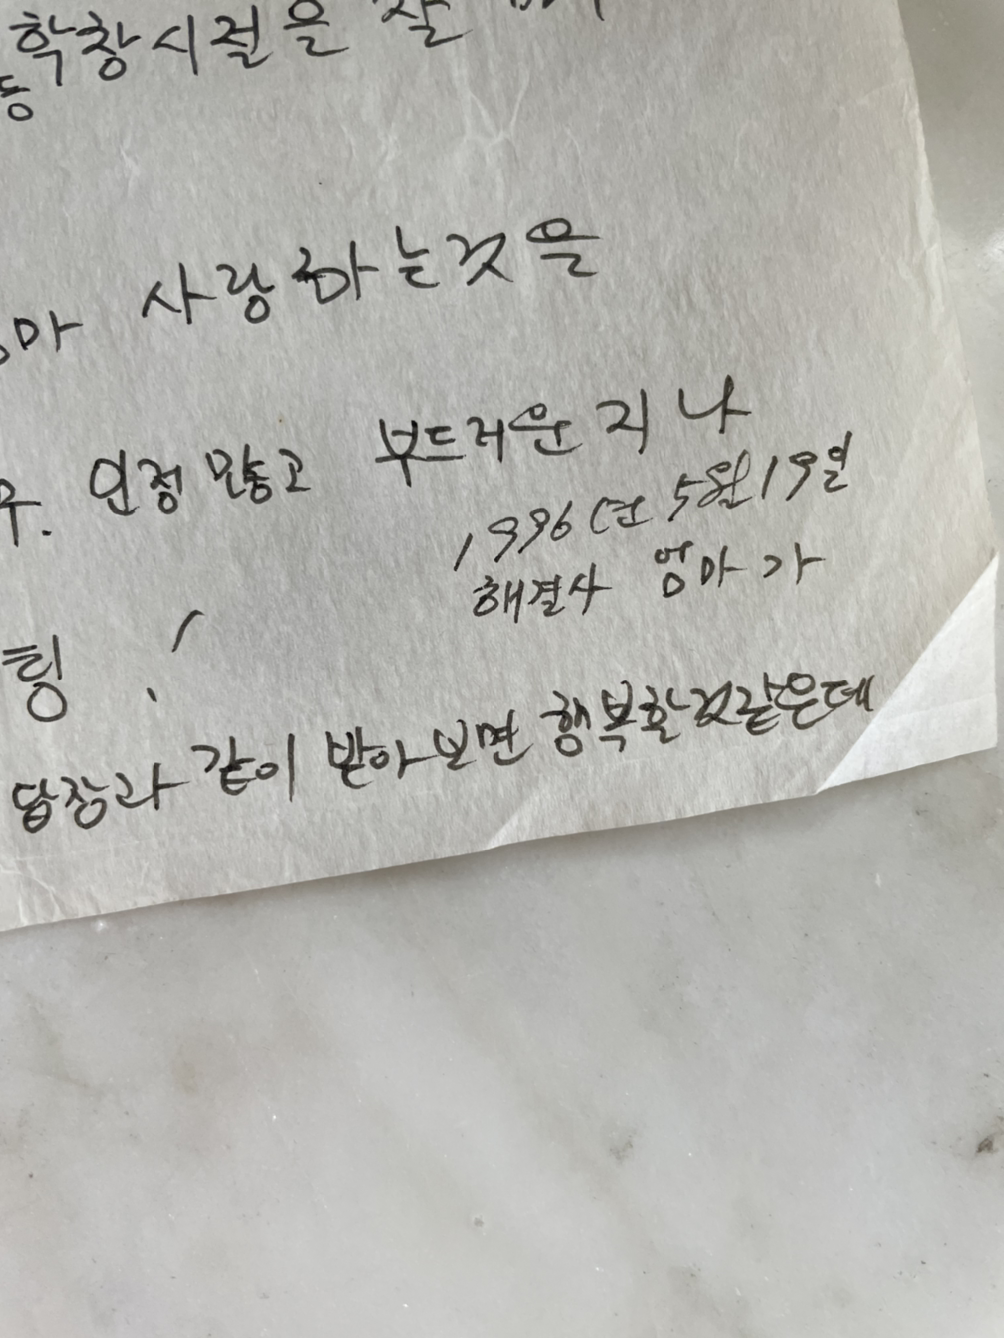 학창시절을 잘
등
엄마 사랑하는것을
우. 인정 많고 부드러운 지나
1996년 5월 19일
해결사 엄마가
힝 !
답장과 같이 받아보면 행복할것같은데